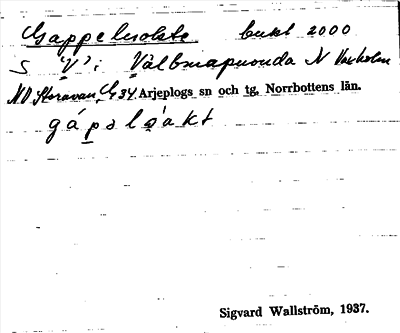 Gappeluokte bukt 2000
S "V" i Välbmapuonda N
NO Storavan G 34 Arjeplogs sn och tg, Norrbottens län.
gápsluakt
Sigvard Wallström, 1937.